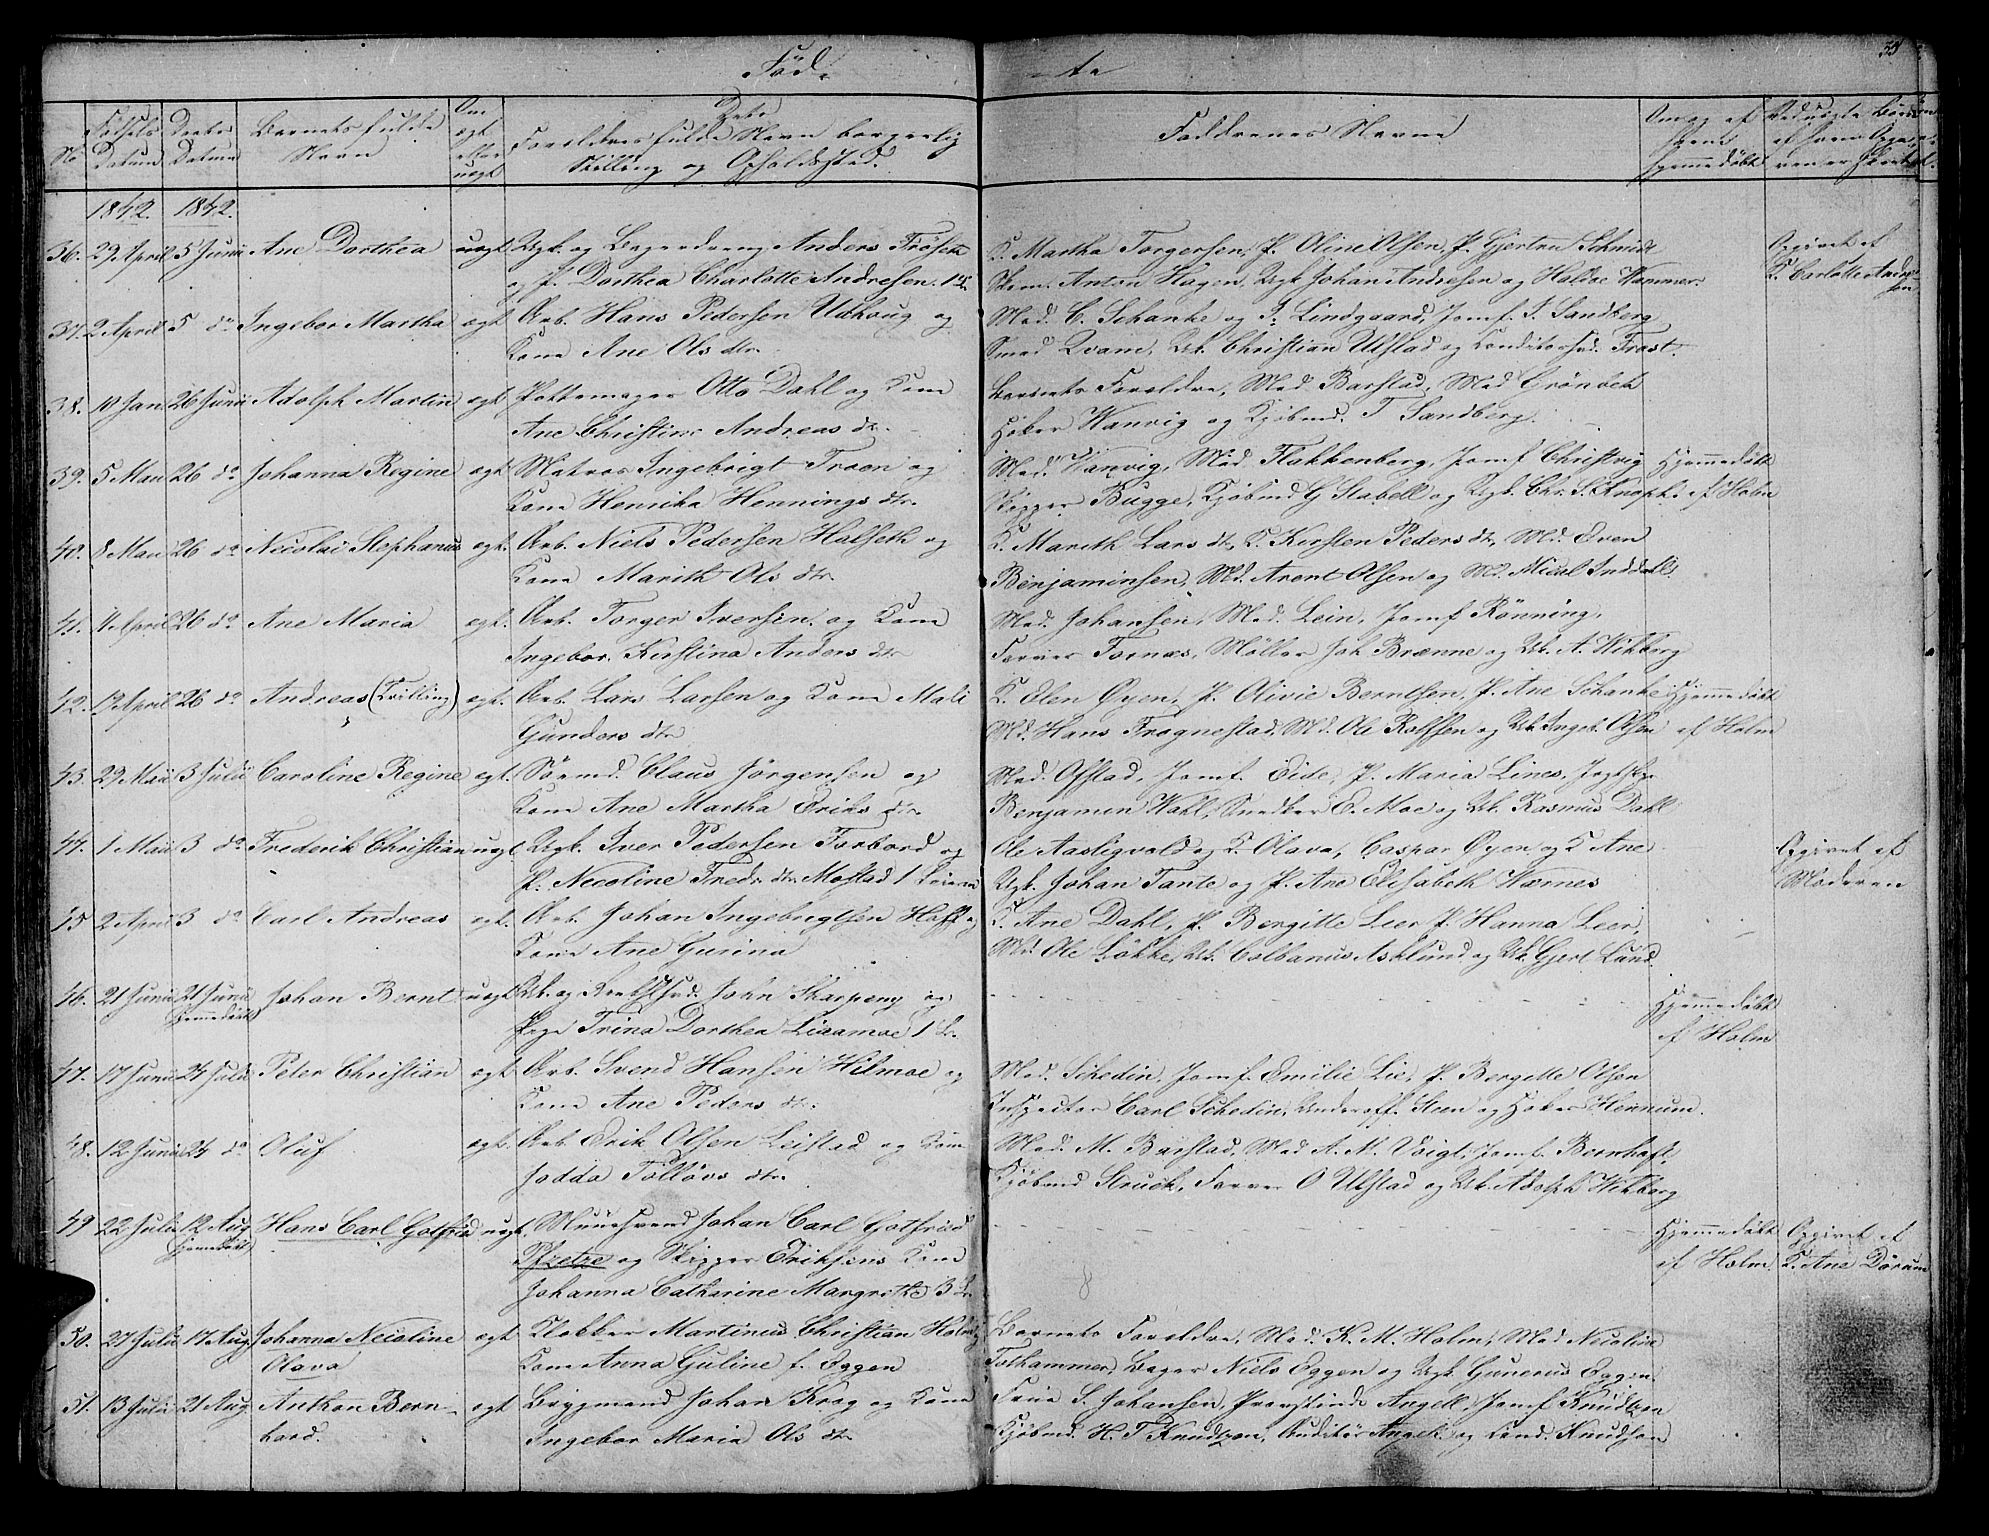 Föd-
-te
35
No
Fødsels Datum
Daabs Datum
Barnets fulde Navn
Om ægt eller uægt
Dets Forældres fulde Navn borgerlig Stilling og Opholdssted.
Faddrenes Navne
Om og af hvem hjemmedøbt
1842. 1842.
36. 29 April 5 Junii Ane Dorthea uægt Ugk. og Bagerdreng Anders Fröseth
og P. Dorthea Charlotte Andresen. 1 L.
K. Martha Torgersen, P. Oline Olsen, P. Gjertru Schmidt
Skom. Anton Hagen, Ugk Johan Andresen og Haldoe Hammer
Opgivet af
K. Carlotte Andresen
37. 2 April 5 do Ingebor Martha ægt Arb. Hans Pedersen Udhoug og
Kone Ane Ols dtr.
Mad. C. Schanke og J. Lindgaard, Jomf. J. Sandberg
Smed Qvam, Uk. Christian Ulstad og Conditorsvd. Frost.
38. 10 Jan. 26 Junii Adolph Martin ægt Pottemager Otto Dahl og Kone
Ane Christine Andreas dtr.
Barnets Forældre, Mad. Barstad, Mad Grönbek
Høker Wanvig og Kjöbmd. T Sandberg.
39. 5 Maii 26 do Johanna Regine ægt Matros Ingebrigt Troen og
Kone Henrika Hennings dtr.
Mad. Wanvig, Mad Flakkenberg, Jomf Christvig
Skipper Bugge, Kjöbmd G Stabell og Ugk. Chr. S. Knoph.
Hjemmedöbt
af Holm
40. 8 Maii 26 do Nicolai Stephanus ægt. Arb. Niels Pedersen Halseth og
Kone Marith Ols dtr.
K. Marith Lars dtr, K. Kirsten Peders dtr, Md Even
Benjaminsen, Md. Arent Olsen og Md. Micel Inddal
41. 11 April 26 do Ane Maria ægt. Arb. Torger Iversen og Kone
Ingebor. Kirstina Anders dtr
Mad. Johansen, Mad. Lein, Jomf Rönning,
Farver Fornæs, Möller Joh Brænne og Uk. A. Wikberg
42. 19 April 26 do Andreas (Tvilling) ægt. Arb. Lars Larsen og Kone Mali
Gunders dtr
K. Elen Øyen, P. Olivie Berntsen, P. Ane Schanke
Md. Hans Frognestad, Md. Ole Rolfsen og Uk. Ingeb. Olsen
Hjemmedöbt
af Holm
43. 29 Maii 3 Julii Caroline Regine ægt. Sörmd. Claus Jörgensen og
Kone Ane Martha Eriks dtr.
Mad. Ofstad, Jomf. Eide, P. Maria Lines,
Benjamin Wahl, Snedker E. Moe og Uk. Rasmus Dahl
44. 1 Maii 3 do Frederik Christian uægt Ugk. Iver Pedersen Forbord og
P. Nicoline Fredr. dtr. Mostad 1 Leierm
Ole Aastigvold og K. Olava, Caspar Øyen og K Ane
Ugk. Johan Tante og P. Ane Elisabeth Værnes
Opgivet af
Moderen
45 2 April 3 do Carl Andreas ægt. Arb. Johan Ingebrigtsen Hoff og
Kone Ane Gurina
K. Ane Dahl, P. Bergitte Leer P. Hanna Leer,
Md. Ole Løkke, Uk. Colbanus Asklund og Uk. Gjert Lund.
46. 21 Junii 21 Junii Hjemmedöbt Johan Bernt uægt Uk. og John Skarpeng og
Pige Trina Dorthea Lieamoe 1 L.
Hjemmedöbt
af Holm
47. 17 Junii 24 Julii Peter Christian ægt Arb. Svend Hansen Hilmoe og
Kone Ane Peders dtr.
Mad. Schedin, Jomf. Emilie Lie, P. Bergitte Olsen
Inspecter Carl Schedin, Underoff. Steen og Høker Hernum.
48. 12 Junii 24 do Oluf ægt. Arb Erik Olsen Leistad og Kone
Jodda Tolløvs dtr.
Mad. M. Barstad, Mad A. M. Voigt, Jomf. Bernhoft,
Kjöbmd Struck, Farver O Ulstad og Uk. Adolph Wikberg
49 22 Julii 12 Aug. Hjemmedöbt Hans Carl Gotfried uægt. Muursvend Johan Carl Gotfried
Pfretze og Skipper Eriksens Kone
Johanna Catharine Margrethe 3 L.
Hjemmedöbt
af Holm.
Opgivet af
K. Ane Dörum
8
50. 27 Julii 17 Aug. Johanna Nicoline Olava ægt Klokker Martinus Christian Holm og
Kone Anna Guline f. Eggen
Barnets Forældre, Mad. K. M. Holm, Mad Nicoline
Tothammer, Bager Niels Eggen og Ugk. Gunerus Eggen.
51. 13 Julii 21 Aug. Anthon Bernhard. ægt Brygmand Johan Krog og Kone
Ingebor Maria Ols dtr.
Frue S. Johansen, Provstinde Angell, Jomf Knudtzon
Kjöbmd. H. T Knudtzon, Auditör Angell og Cand. Knudtzon